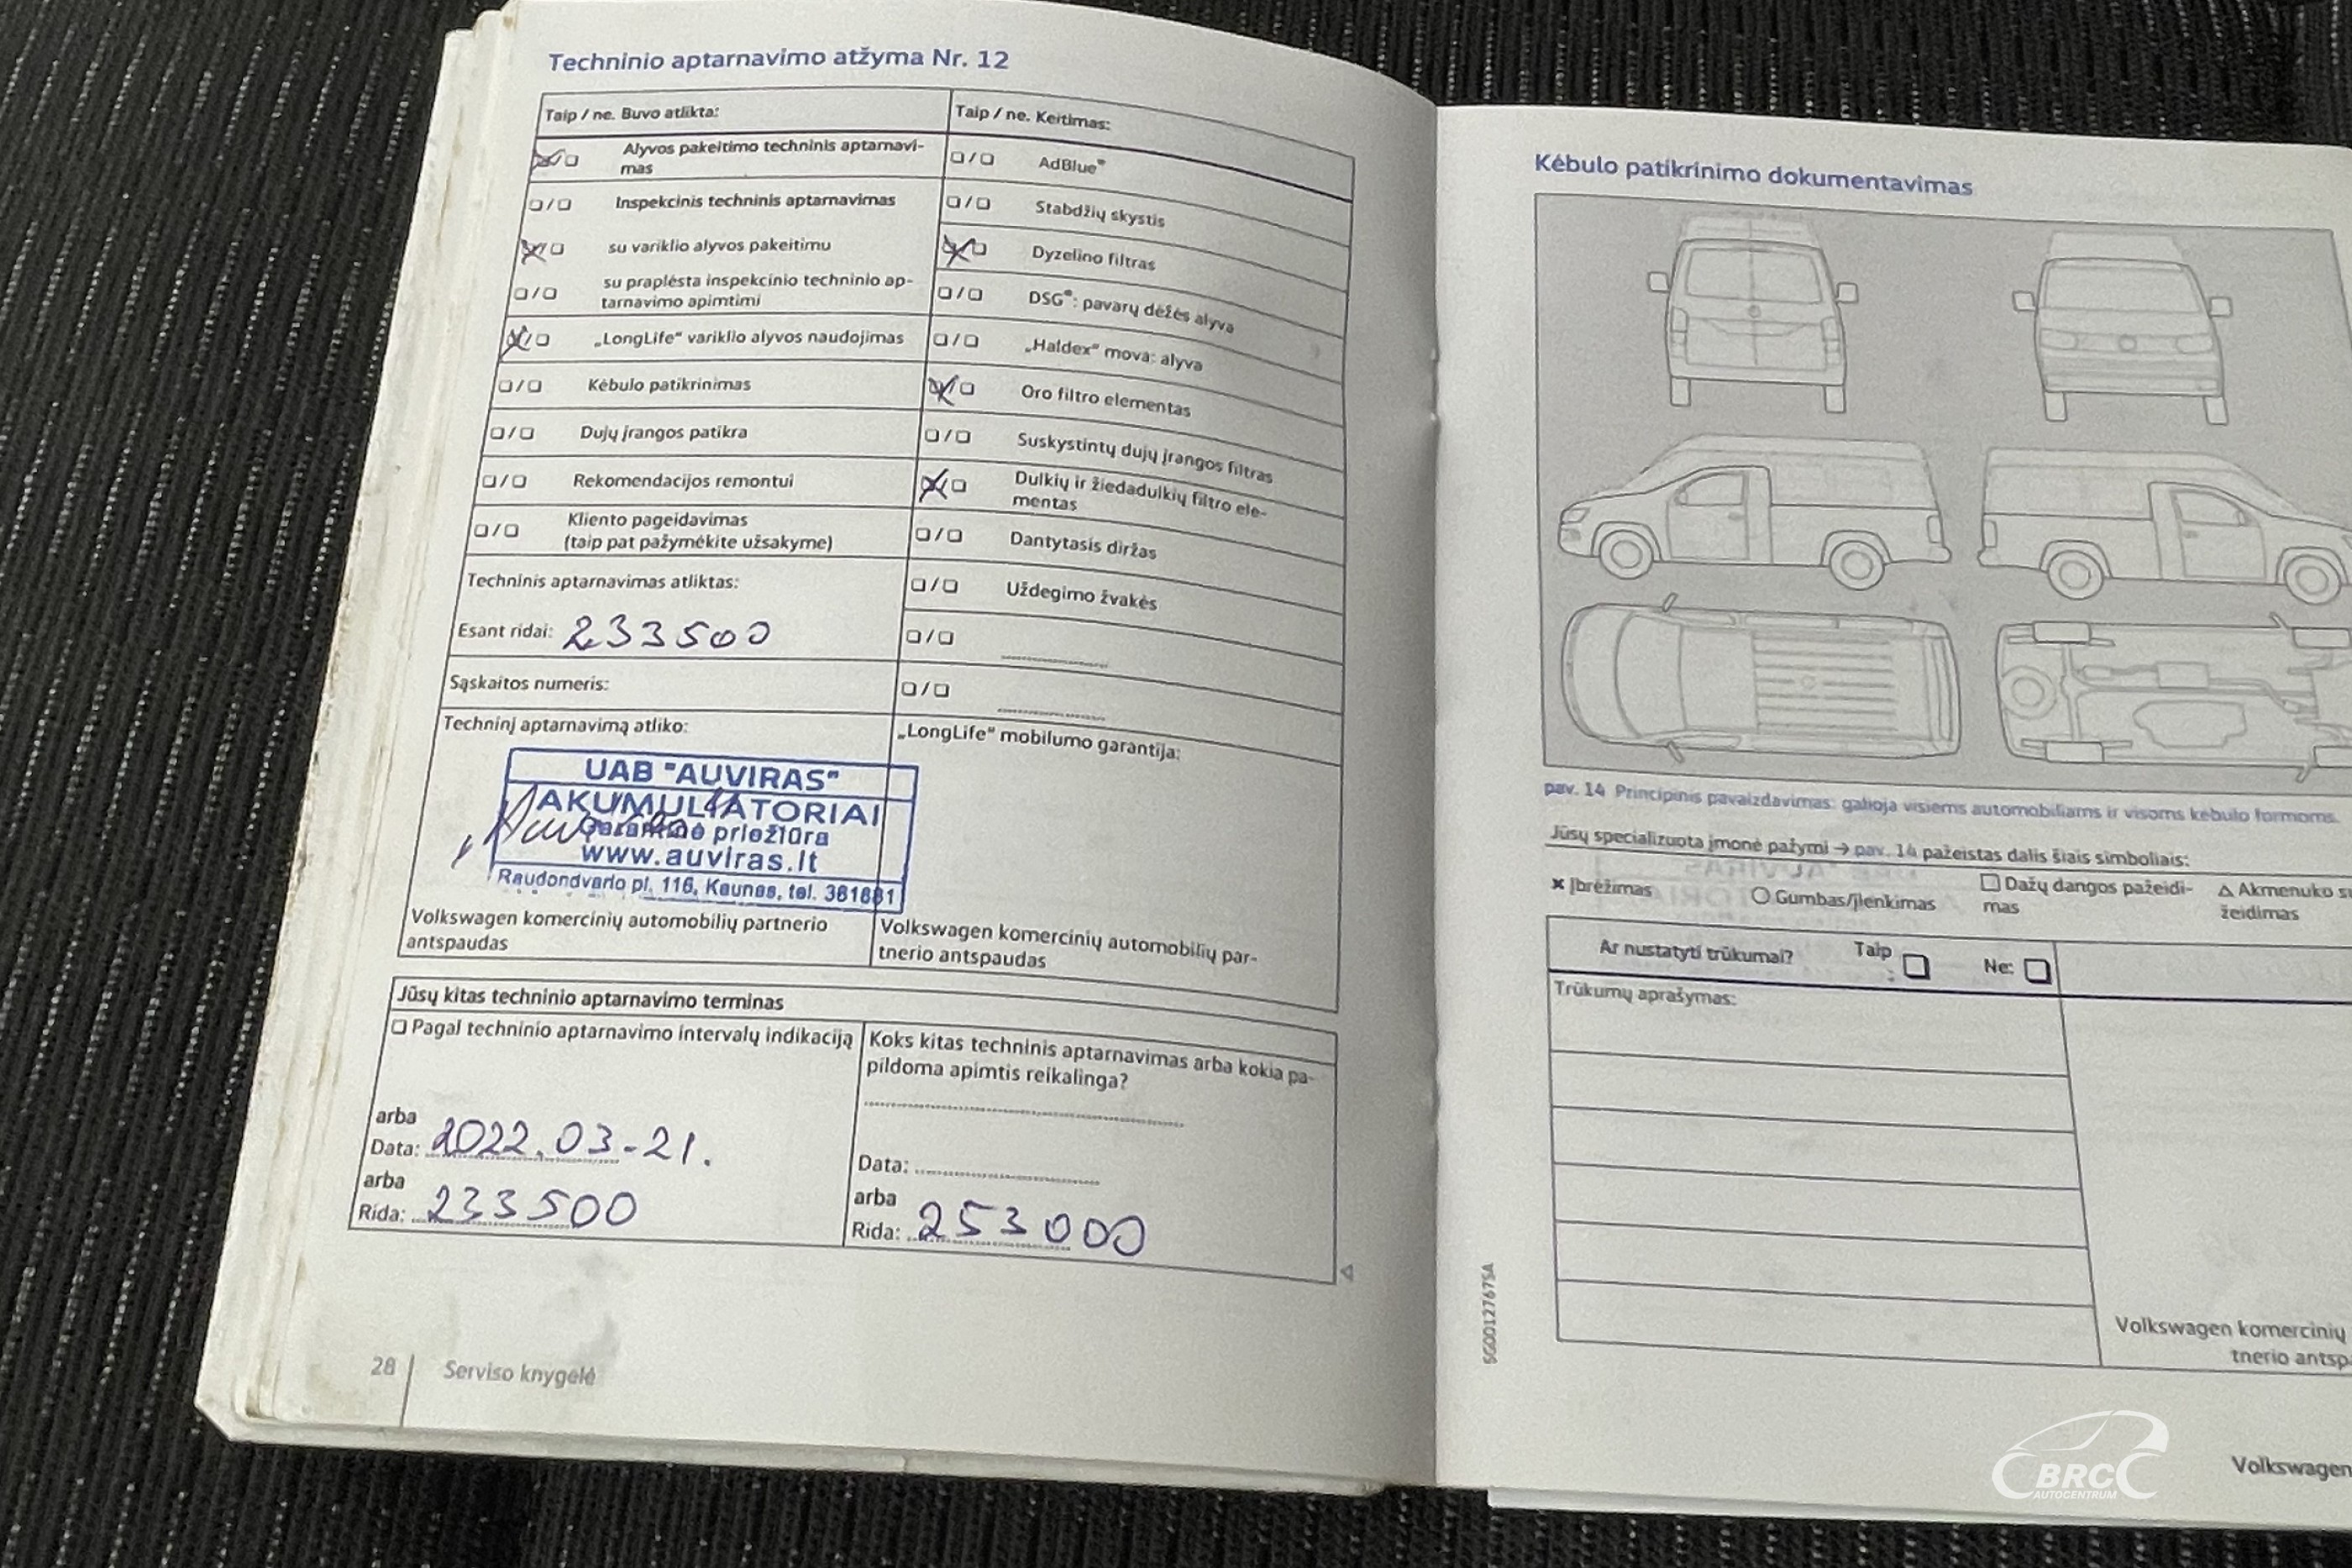 Techninio aptarnavimo atžyma Nr. 12
Taip / ne. Buvo atlikta:
Alyvos pakeitimo techninis aptarnavi-
mas
Inspekcinis techninis aptarnavimas
su variklio alyvos pakeitimu
su praplėsta inspekcinio techninio ap-
tarnavimo apimtimi
„LongLife“ variklio alyvos naudojimas
Kėbulo patikrinimas
Dujų įrangos patikra
Rekomendacijos remontui
Kliento pageidavimas
(taip pat pažymėkite užsakyme)
Techninis aptarnavimas atliktas:
Esant ridai: 233500
Sąskaitos numeris:
Techninį aptarnavimą atliko:
UAB "AUVIRAS"
AKUMULIATORIAI
Garantinė priežiūra
www.auviras.lt
Raudondvario pl. 116, Kaunas, tel. 361681
Volkswagen komercinių automobilių partnerio
antspaudas
Taip / ne. Keitimas:
AdBlue®
Stabdžių skystis
Dyzelino filtras
DSG®: pavarų dėžės alyva
„Haldex“ mova: alyva
Oro filtro elementas
Suskystintų dujų įrangos filtras
Dulkių ir žiedadulkių filtro ele-
mentas
Dantytasis diržas
Uždegimo žvakės
„LongLife“ mobilumo garantija:
Volkswagen komercinių automobilių par-
tnerio antspaudas
Jūsų kitas techninio aptarnavimo terminas
Pagal techninio aptarnavimo intervalų indikaciją
arba
Data: 2022.03-21.
arba
Rida: 233500
Koks kitas techninis aptarnavimas arba kokia pa-
pildoma apimtis reikalinga?
Data:
arba
Rida: 253000
28 Serviso knygelė
Kėbulo patikrinimo dokumentavimas
pav. 14 Principinis pavaizdavimas: galioja visiems automobiliams ir visoms kėbulo formoms.
Jūsų specializuota įmonė pažymi → pav. 14 pažeistas dalis šiais simboliais:
× Įbrėžimas
○ Gumbas/įlenkimas
□ Dažų dangos pažeidi-
mas
△ Akmenuko su
žeidimas
Ar nustatyti trūkumai? Taip
: Ne:
Trūkumų aprašymas:
Volkswagen komercinių
tnerio antsp
5GG012767SA
Volkswagen
BRC
AUTOCENTRUM